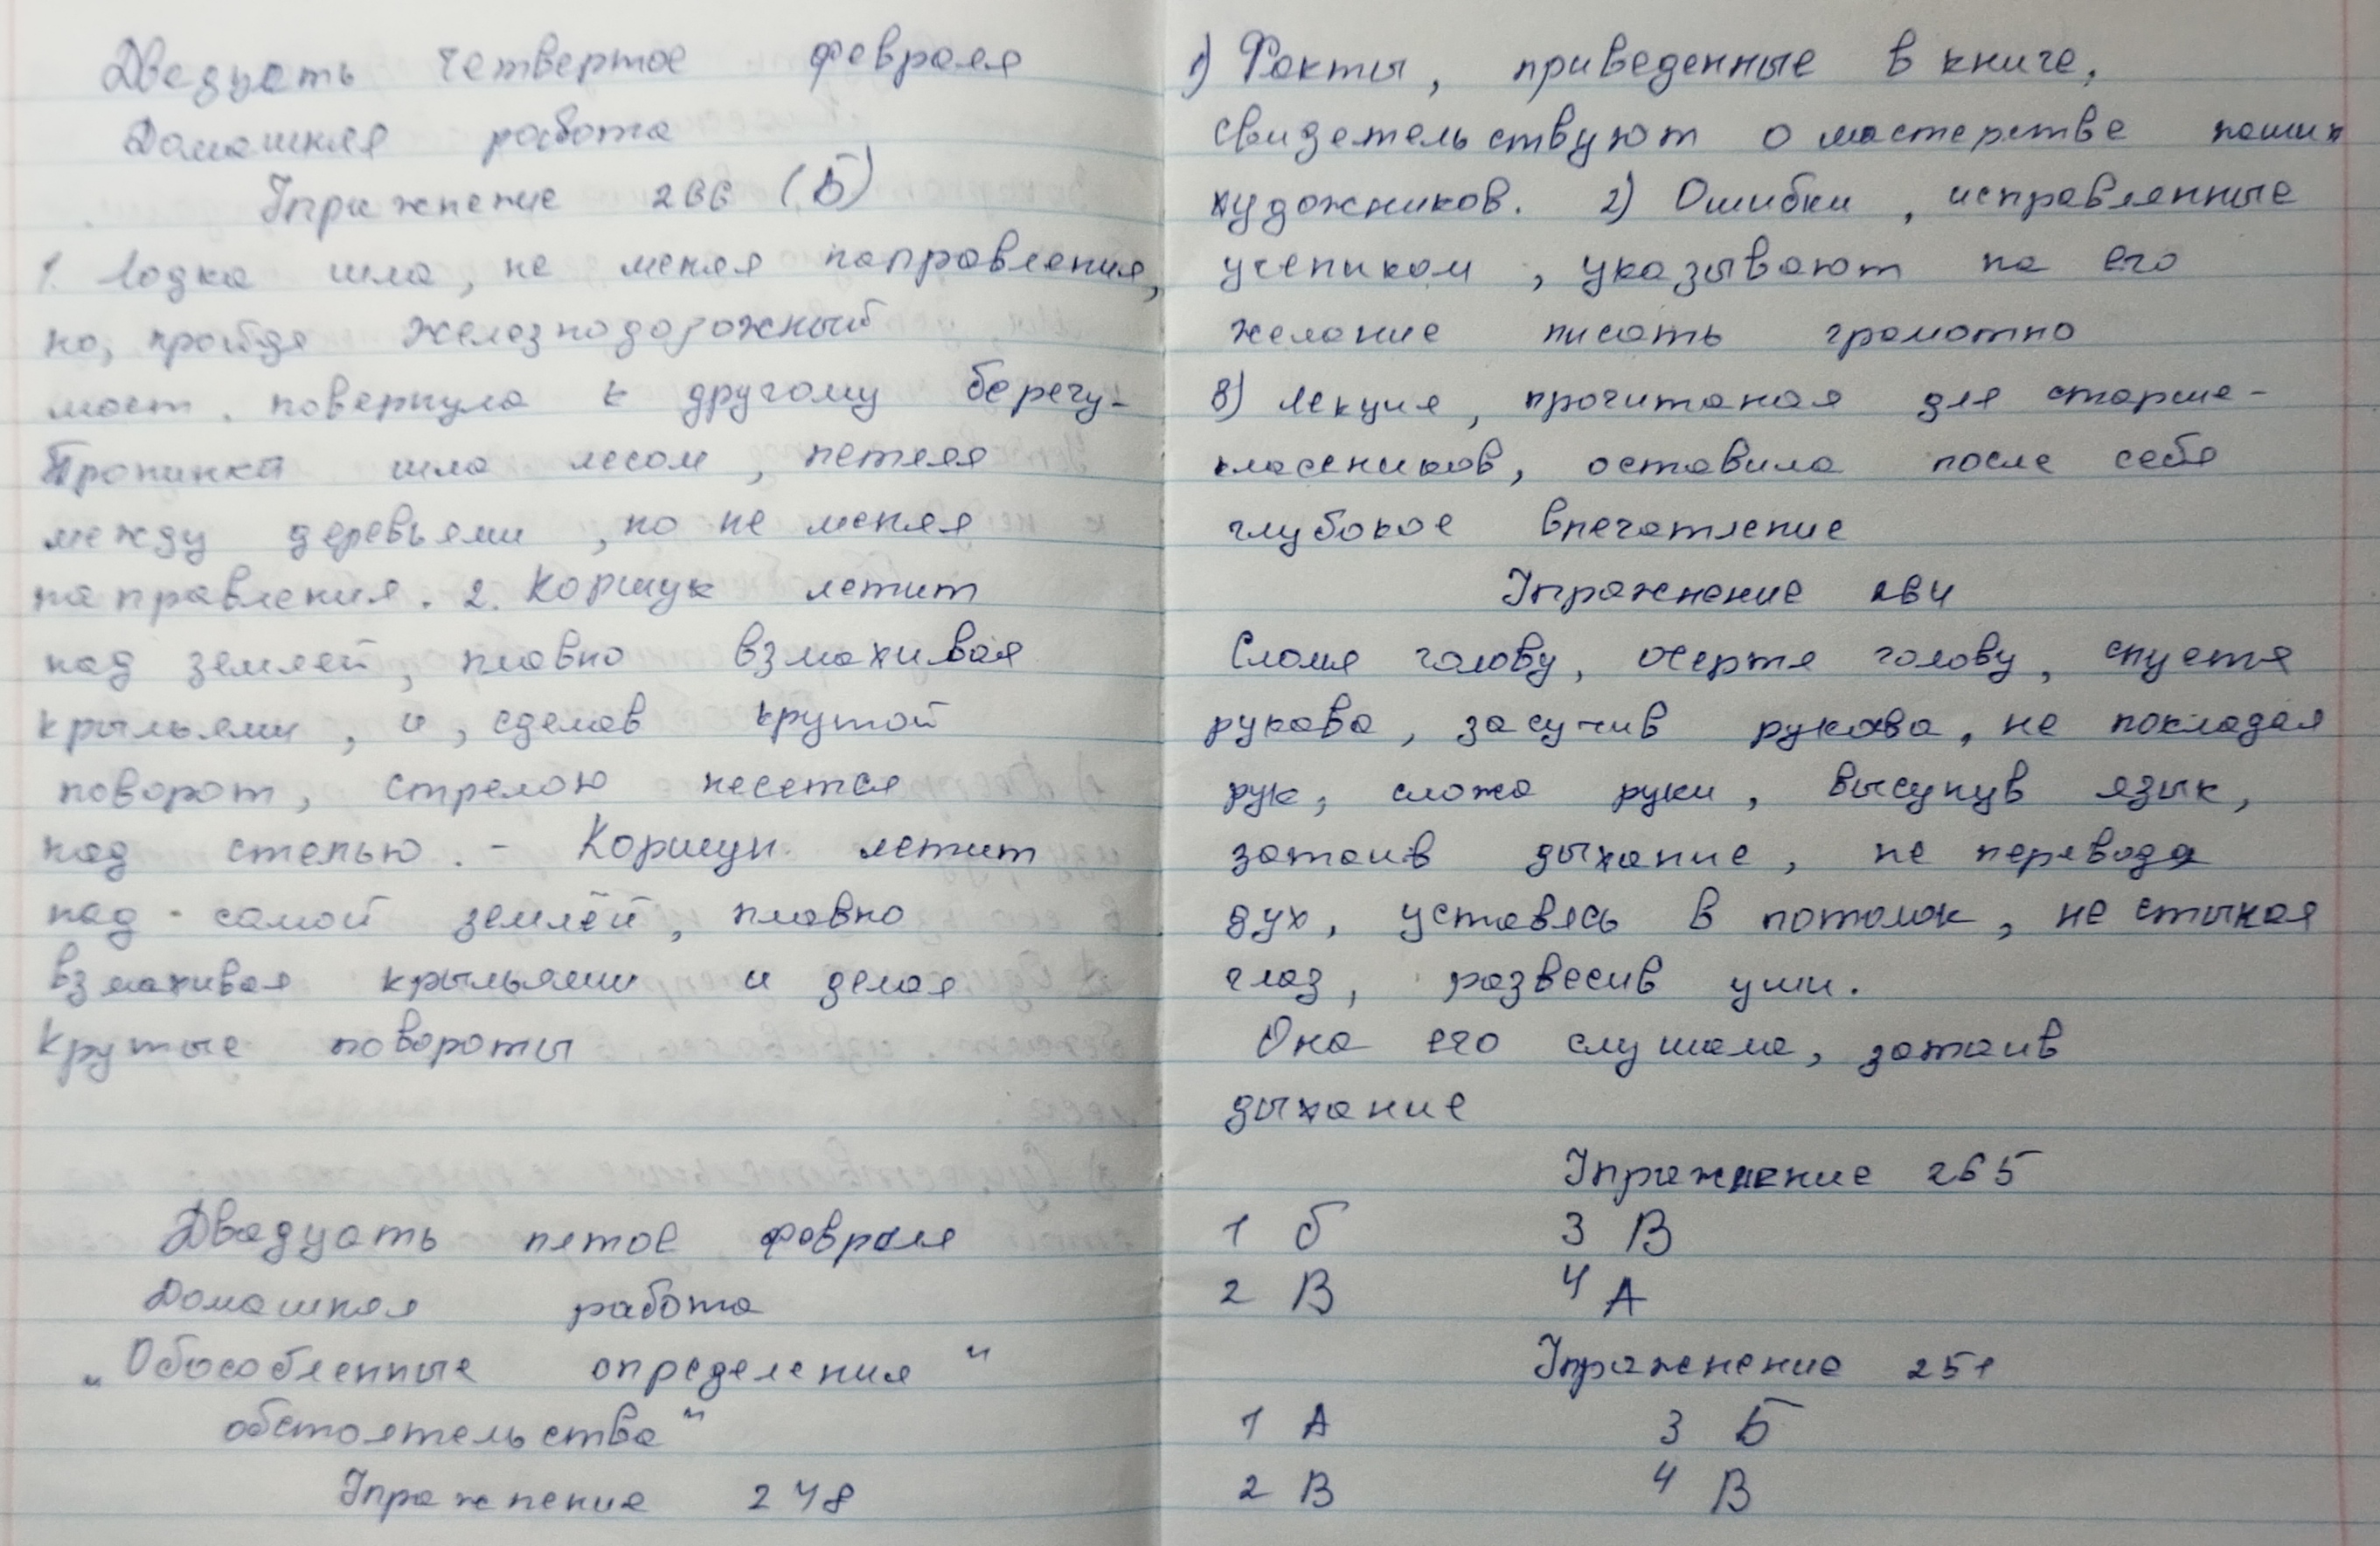 Двадцать четвертое февраля
Домашняя работа
Упражнение 266 (Б)
1. Лодка шла, не меняя направления,
но, пройдя железнодорожный
мост, повернула к другому берегу-
Тропинка шла лесом, петляя
между деревьями, но не меняя
направления. 2. Коршук летит
над землей, плавно взмахивая
крыльями, и, сделав крутой
поворот, стрелою несется
над степью. - Коршун летит
над самой землёй, плавно
взмахивая крыльями и делая
крутые повороты
Двадцать пятое февраля
Домашняя работа
„Обособленные определения"
обстоятельства"
Упражнение 248
1) Факты, приведенные в книге,
свидетельствуют о мастерстве наших
художников. 2) Ошибки, исправленные
учеником, указывают на его
желание писать грамотно
8) Лекция, прочитаная для старше-
классников, оставила после себя
глубокое впечатление
Упражнение 264
Сломя голову, очертя голову, спустя
рукава, засучив рукава, не покладая
рук, сложа руки, высунув язык,
затаив дыхание, не переводя
дух, уставясь в потолок, не смыкая
глаз, развесив уши.
Она его слушала, затаив
дыхание
Упражнение 265
1 б 3 В
2 В 4 А
Упражнение 251
1 А 3 Б
2 В 4 В